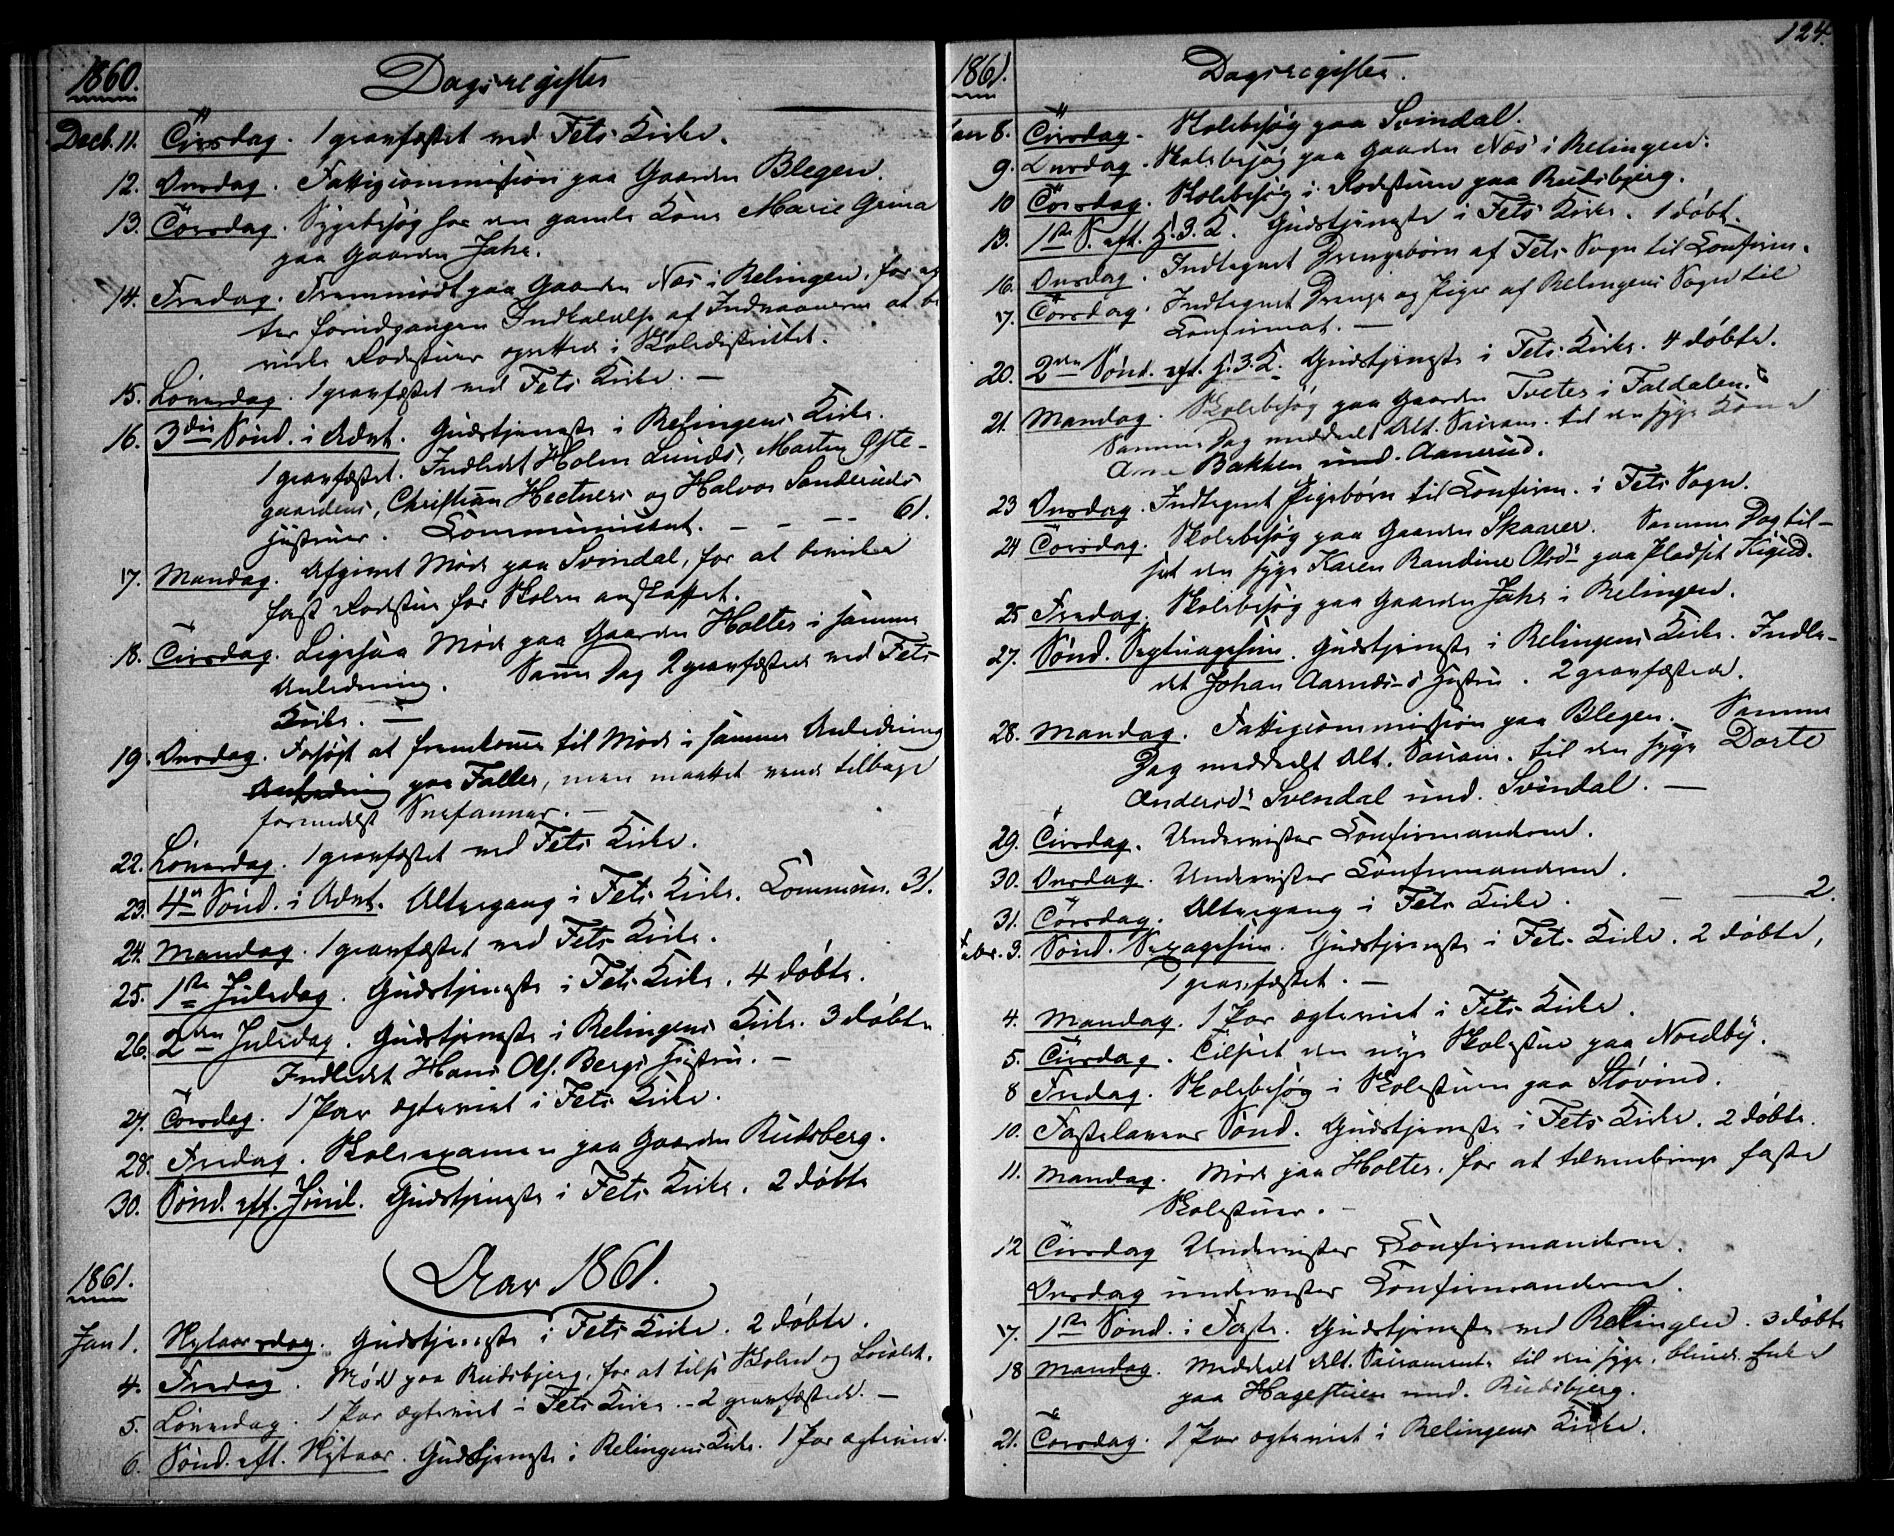 1860. Dagsregister
Decb. 11. Tirsdag. 1 gravfæstet ved Fets Kirke.
12. Onsdag. Fattigcommission paa Gaarden Blegen.
13. Torsdag. Sygebesøg hos den gamle Kone Marie Grina
paa Gaarden Jahr.
14. Fredag. Fremmødt paa Gaarden Næs i Relingen, for ef
ter foregangen Indkaldelse af Indvaanerne at be
virke Rodestuer oprettede i Skoledistriktet.
15. Løverdag. 1 gravfæstet ved Fets Kirke. —
16. 3die Sønd. i Advt. Gudstjeneste i Relingens Kirke.
1 gravfæstet. Indledet Holm Lunds, Marten Øste-
gaardens, Christian Hectners og Halvor Sanderuds
Hustruer. Communiceret. — — — 61.
17. Mandag. Afgivet Møde paa Svindal, for at bevirke
fast Rodestue for Skolen anskaffet.
18. Tirsdag. Ligesaa Møde paa Gaarden Holter i samme
Anledning. Samme Dag 2 gravfæstede ved Fets
Kirke. —
19. Onsdag. Forsøgt at fremkomme til Møde i samme Anledning
Anledning paa Faller, men maattet vende tilbage
formedelst Snefanner. —
22. Løverdag. 1 gravfæstet ved Fets Kirke.
23. 4de Sønd. i Advt. Altergang i Fets Kirke. Commun. 31.
24. Mandag. 1 gravfæstet ved Fets Kirke.
25. 1ste Juledag. Gudstjeneste i Fets Kirke. 4 døbte.
26. 2den Juledag. Gudstjeneste i Relingens Kirke. 3 døbte.
Indledet Hans Ols. Bergs Hustru. —
27. Torsdag. 1 Par ægteviet i Fets Kirke.
28. Fredag. Skoleexamen paa Gaarden Rudsberg.
30. Sønd. eft. Juul. Gudstjeneste i Fets Kirke. 2 døbte
1861. Aar 1861.
Jan 1. Nytaarsdag. Gudstjeneste i Fets Kirke. 2 døbte.
4. Fredag. Møde paa Rudsbjerg, for at tilse Skolen og Localet.
5. Løverdag. 1 Par ægteviet i Fets Kirke. 2 gravfæstede. —
6. Sønd. eft. Nytaar. Gudstjeneste i Relingens Kirke. 1 Par ægteviet.
124.
1861. Dagsregister.
Jan 8. Tirsdag. Skolebesøg paa Svindal.
9. Onsdag. Skolebesøg paa Gaarden Næs i Relingen.
10 Torsdag. Skolebesøg i Rodestuen paa Rudsbjerg.
13. 1ste S. eft. H. 3. K. Gudstjeneste i Fets Kirke. 1 døbt.
16. Onsdag. Indtegnet Drengebørn af Fets Sogn til Confirm.
17. Torsdag. Indtegnet Drenge og Piger af Relingens Sogn til
Confirmat. —
20. 2den Sønd. eft. H. 3. K. Gudstjeneste i Fets Kirke. 4 døbte.
21. Mandag. Skolebesøg paa Gaarden Tveter i Faldalen.
Samme Dag meddelt Alt. Sacram. til den syge Kone
Ane Bakken und. Aanerud.
23 Onsdag. Indtegnet Pigebørn til Confirm. i Fets Sogn.
24 Torsdag. Skolebesøg paa Gaarden Skaarer. Samme Dag til-
seet den syge Karen Randine Olsdr paa Pladset
25 Fredag. Skolebesøg paa Gaarden Jahr i Relingen.
27. Sønd. Septuagesima. Gudstjeneste i Relingens Kirke. Indle-
det Johan Aamodts Hustru. 2 gravfæstede.
28. Mandag. Fattigcommission paa Blegen. Samme
Dag meddelt Alt. Sacram. til den syge Dorte
Andersdr Svendal und. Svindal. —
29. Tirsdag. Underviister Confirmanderne.
30. Onsdag. Underviister Confirmanderne.
31. Torsdag. Altergang i Fets Kirke. — — 2.
Febr. 3. Sønd. Sexagesima. Gudstjeneste i Fets Kirke. 2 døbte,
1 gravfæstet. —
4. Mandag. 1 Par ægteviet i Fets Kirke.
5. Tirsdag. Tilseet den nye Skolestue paa Nordby.
8 Fredag. Skolebesøg i Skolestuen paa Støvind.
10. Fastelavns Sønd. Gudstjeneste i Fets Kirke. 2 døbte.
11. Mandag. Møde paa Holter, for at tilveiebringe faste
Skolestuer. —
12 Tirsdag Underviister Confirmanderne.
Onsdag underviister Confirmanderne.
17. 1ste Sønd. i Faste. Gudstjeneste ved Relingen. 3 døbte
18 Mandag. Meddelt Alt. Sacramente til den syge, blinde Enke
paa Hagestuen und. Rudsbjerg.
21. Torsdag. 1 Par ægteviet i Relingens Kirke.